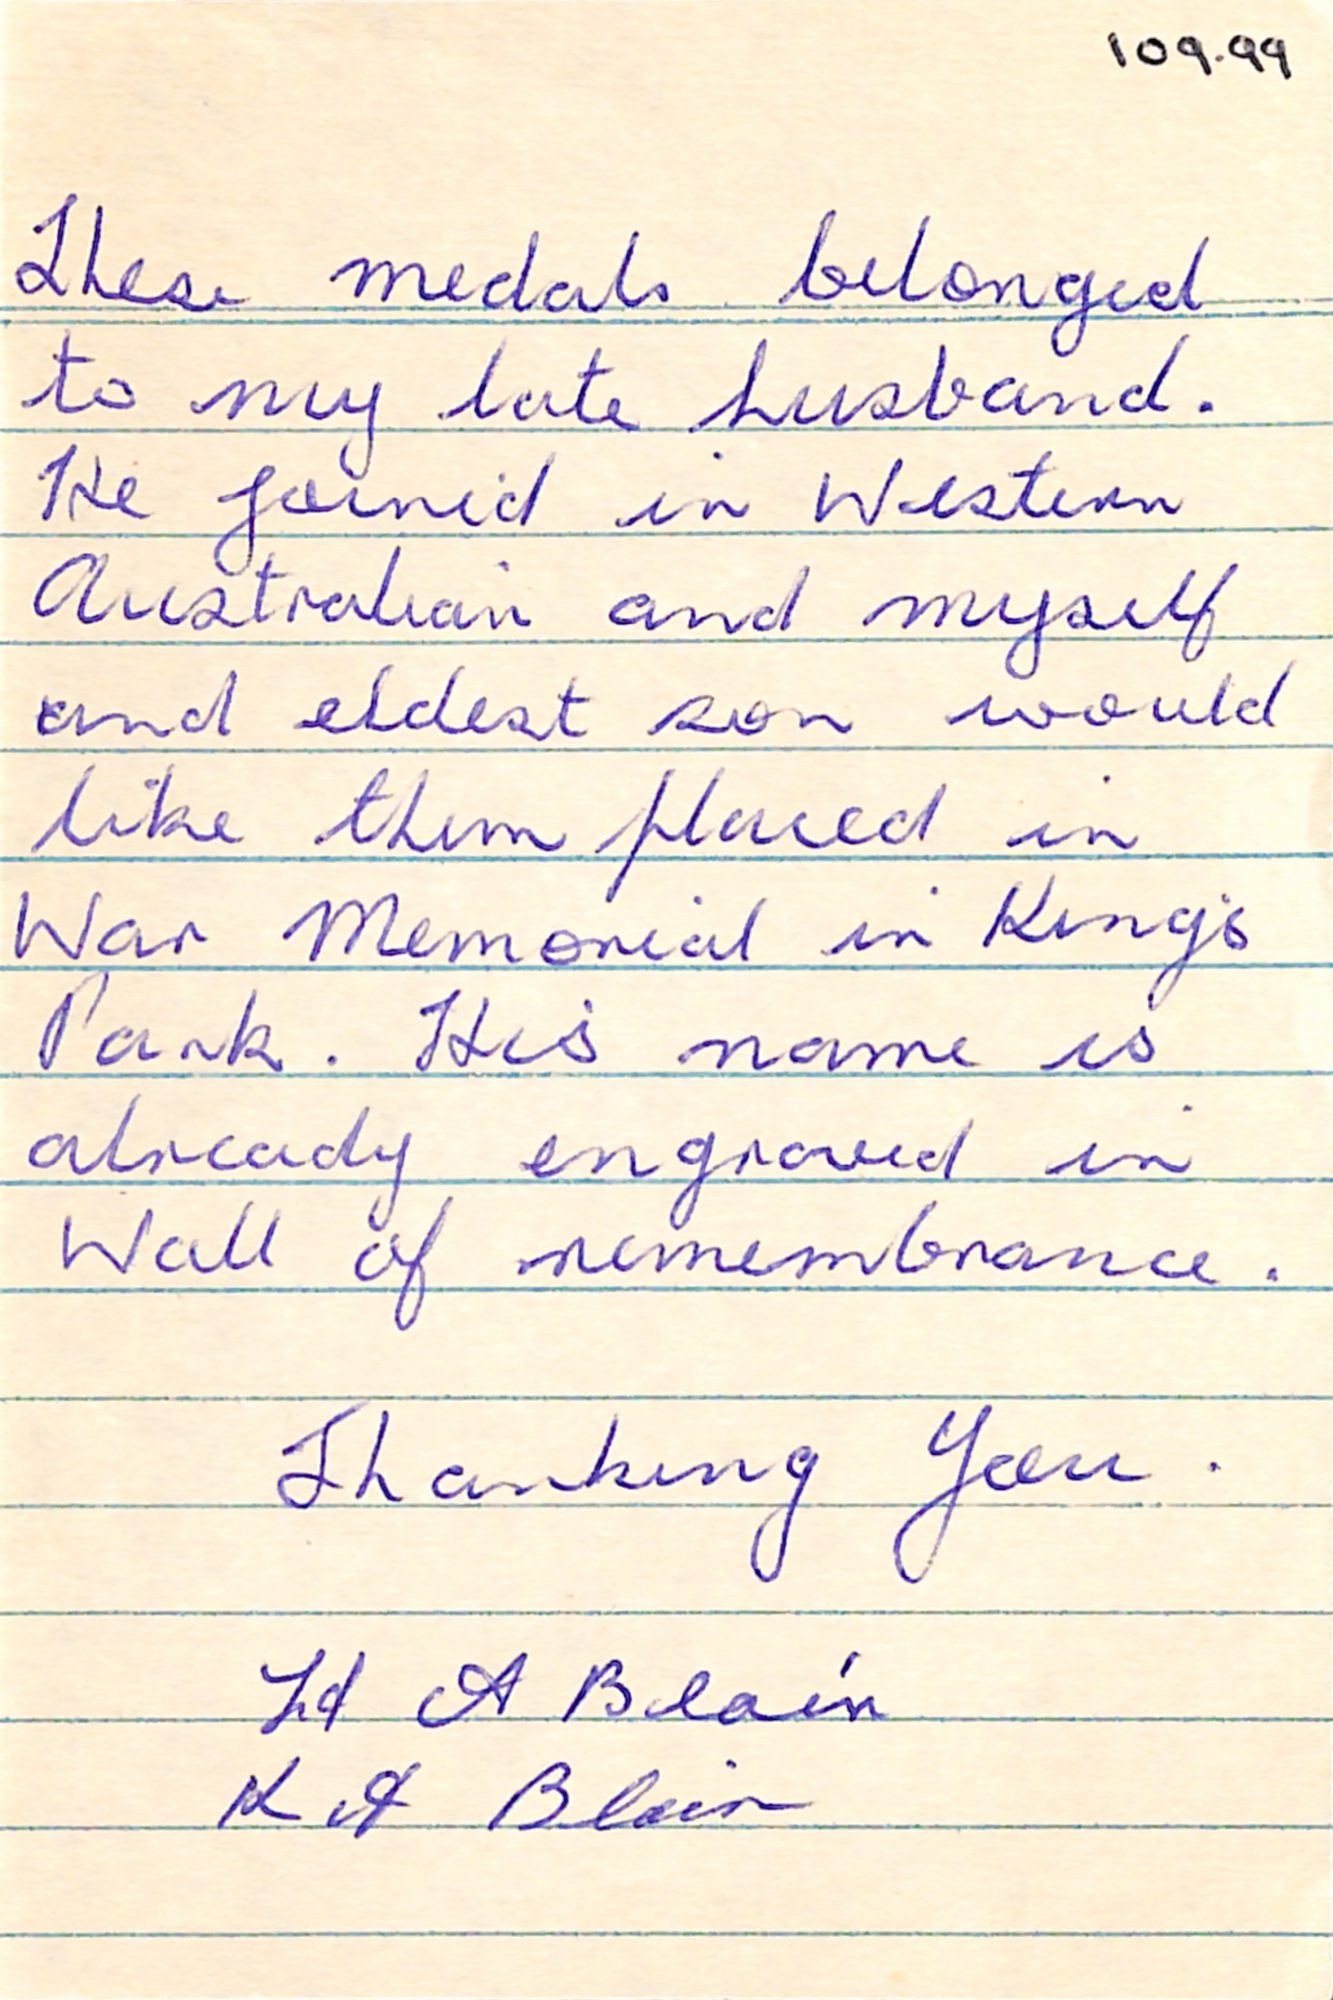 109.99
These medals belonged
to my late husband.
He joined in Western
Australian and myself
and eldest son would
like them placed in
War Memorial in Kings
Park. His name is
already engraved in
Wall of remembrance.
Thanking You.
A Blain
K A Blain